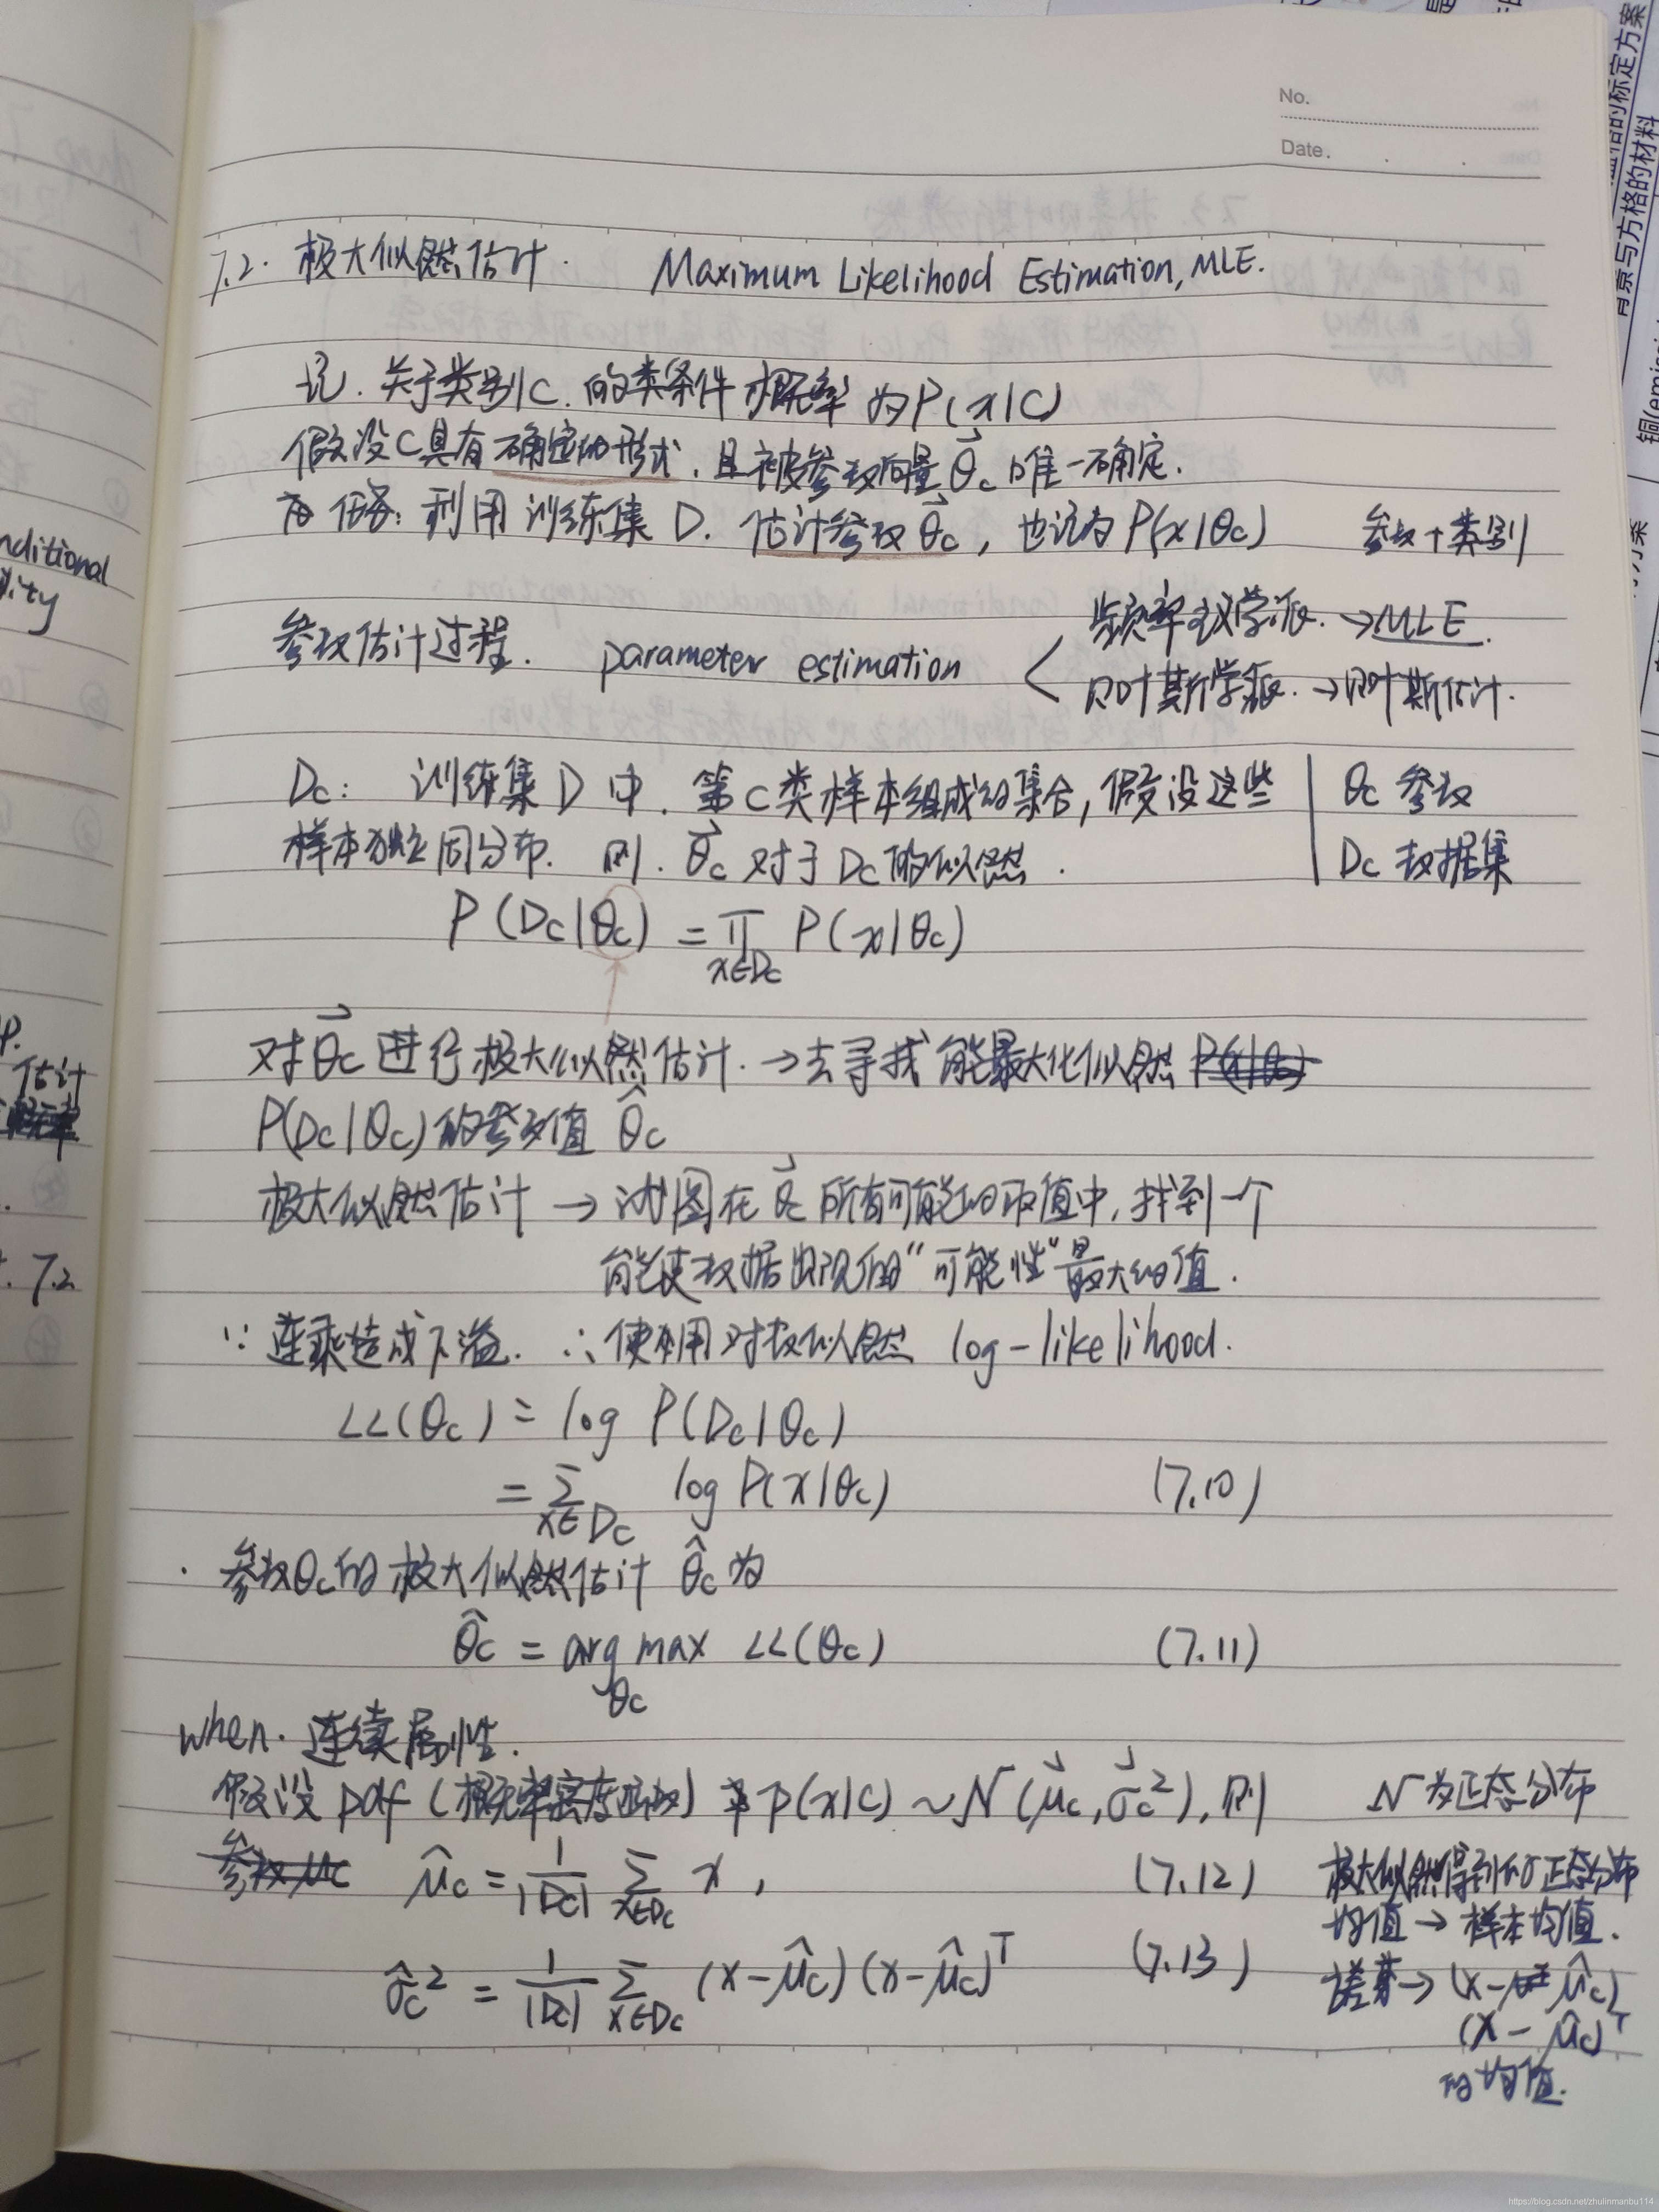 No.
Date.
7.2. 极大似然估计. Maximum Likelihood Estimation, MLE.
记. 关于类别C. 的类条件概率为P(x|C)
假设C具有确定的形式, 且被参数向量 $\vec{θ}_c$ 唯一确定.
任务: 利用训练集 D. 估计参数 $\vec{θ}_c$, 也记为 P(x|θc) 参数+类别
参数估计过程. parameter estimation < 频率主义学派. → MLE.
贝叶斯学派. → 贝叶斯估计.
Dc: 训练集D中. 第C类样本组成的集合, 假设这些 | θc 参数
样本独立同分布. 则. $\vec{θ}_c$ 对于 Dc 的似然. | Dc 数据集
P(Dc|θc) = ∏ P(x|θc)
x∈Dc
对 $\vec{θ}_c$ 进行极大似然估计. → 去寻找能最大化似然 P(x|θc)
P(Dc|θc)的参数值 $\hat{θ}_c$
极大似然估计 → 试图在 $\vec{θ}_c$ 所有可能的取值中, 找到一个
能使数据出现的"可能性"最大的值.
∵ 连乘造成下溢. ∴ 使用对数似然 log-likelihood.
LL(θc) = log P(Dc|θc)
= ∑ log P(x|θc) (7.10)
x∈Dc
· 参数θc的极大似然估计 $\hat{θ}_c$ 为
$\hat{θ}_c$ = arg max LL(θc) (7.11)
θc
when. 连续属性.
假设 pdf (概率密度函数) p(x|c) ~ N($\vec{μ}_c$, $\vec{σ}_c^2$), 则 N 为正态分布
参数μc $\hat{μ}_c$ = $\frac{1}{|Dc|}$ ∑ x , (7.12) 极大似然得到的正态分布
x∈Dc 均值 → 样本均值.
$\hat{σ}_c^2$ = $\frac{1}{|Dc|}$ ∑ (x-$\hat{μ}_c$)(x-$\hat{μ}_c$)^T (7.13) → (x-$\hat{μ}_c$)
x∈Dc (x-$\hat{μ}_c$)^T
的均值.
nditional
lity
估计
7.2
标定方案
背景与方格的材料
https://blog.csdn.net/zhulinmanbu114